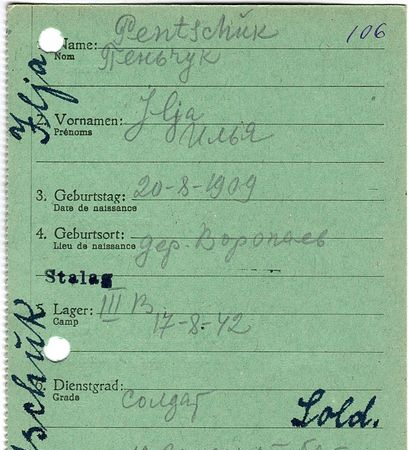 106
1. Name: Pentschuk
Nom Пеньчук
2. Vornamen: Jlja
Prénoms Илья
3. Geburtstag: 20-8-1909
Date de naissance
4. Geburtsort: дер. Воропаев
Lieu de naissance
Stalag
5. Lager: III B
Camp 17-8-42
6. Dienstgrad:
Grade солдат
Sold.
Jlja